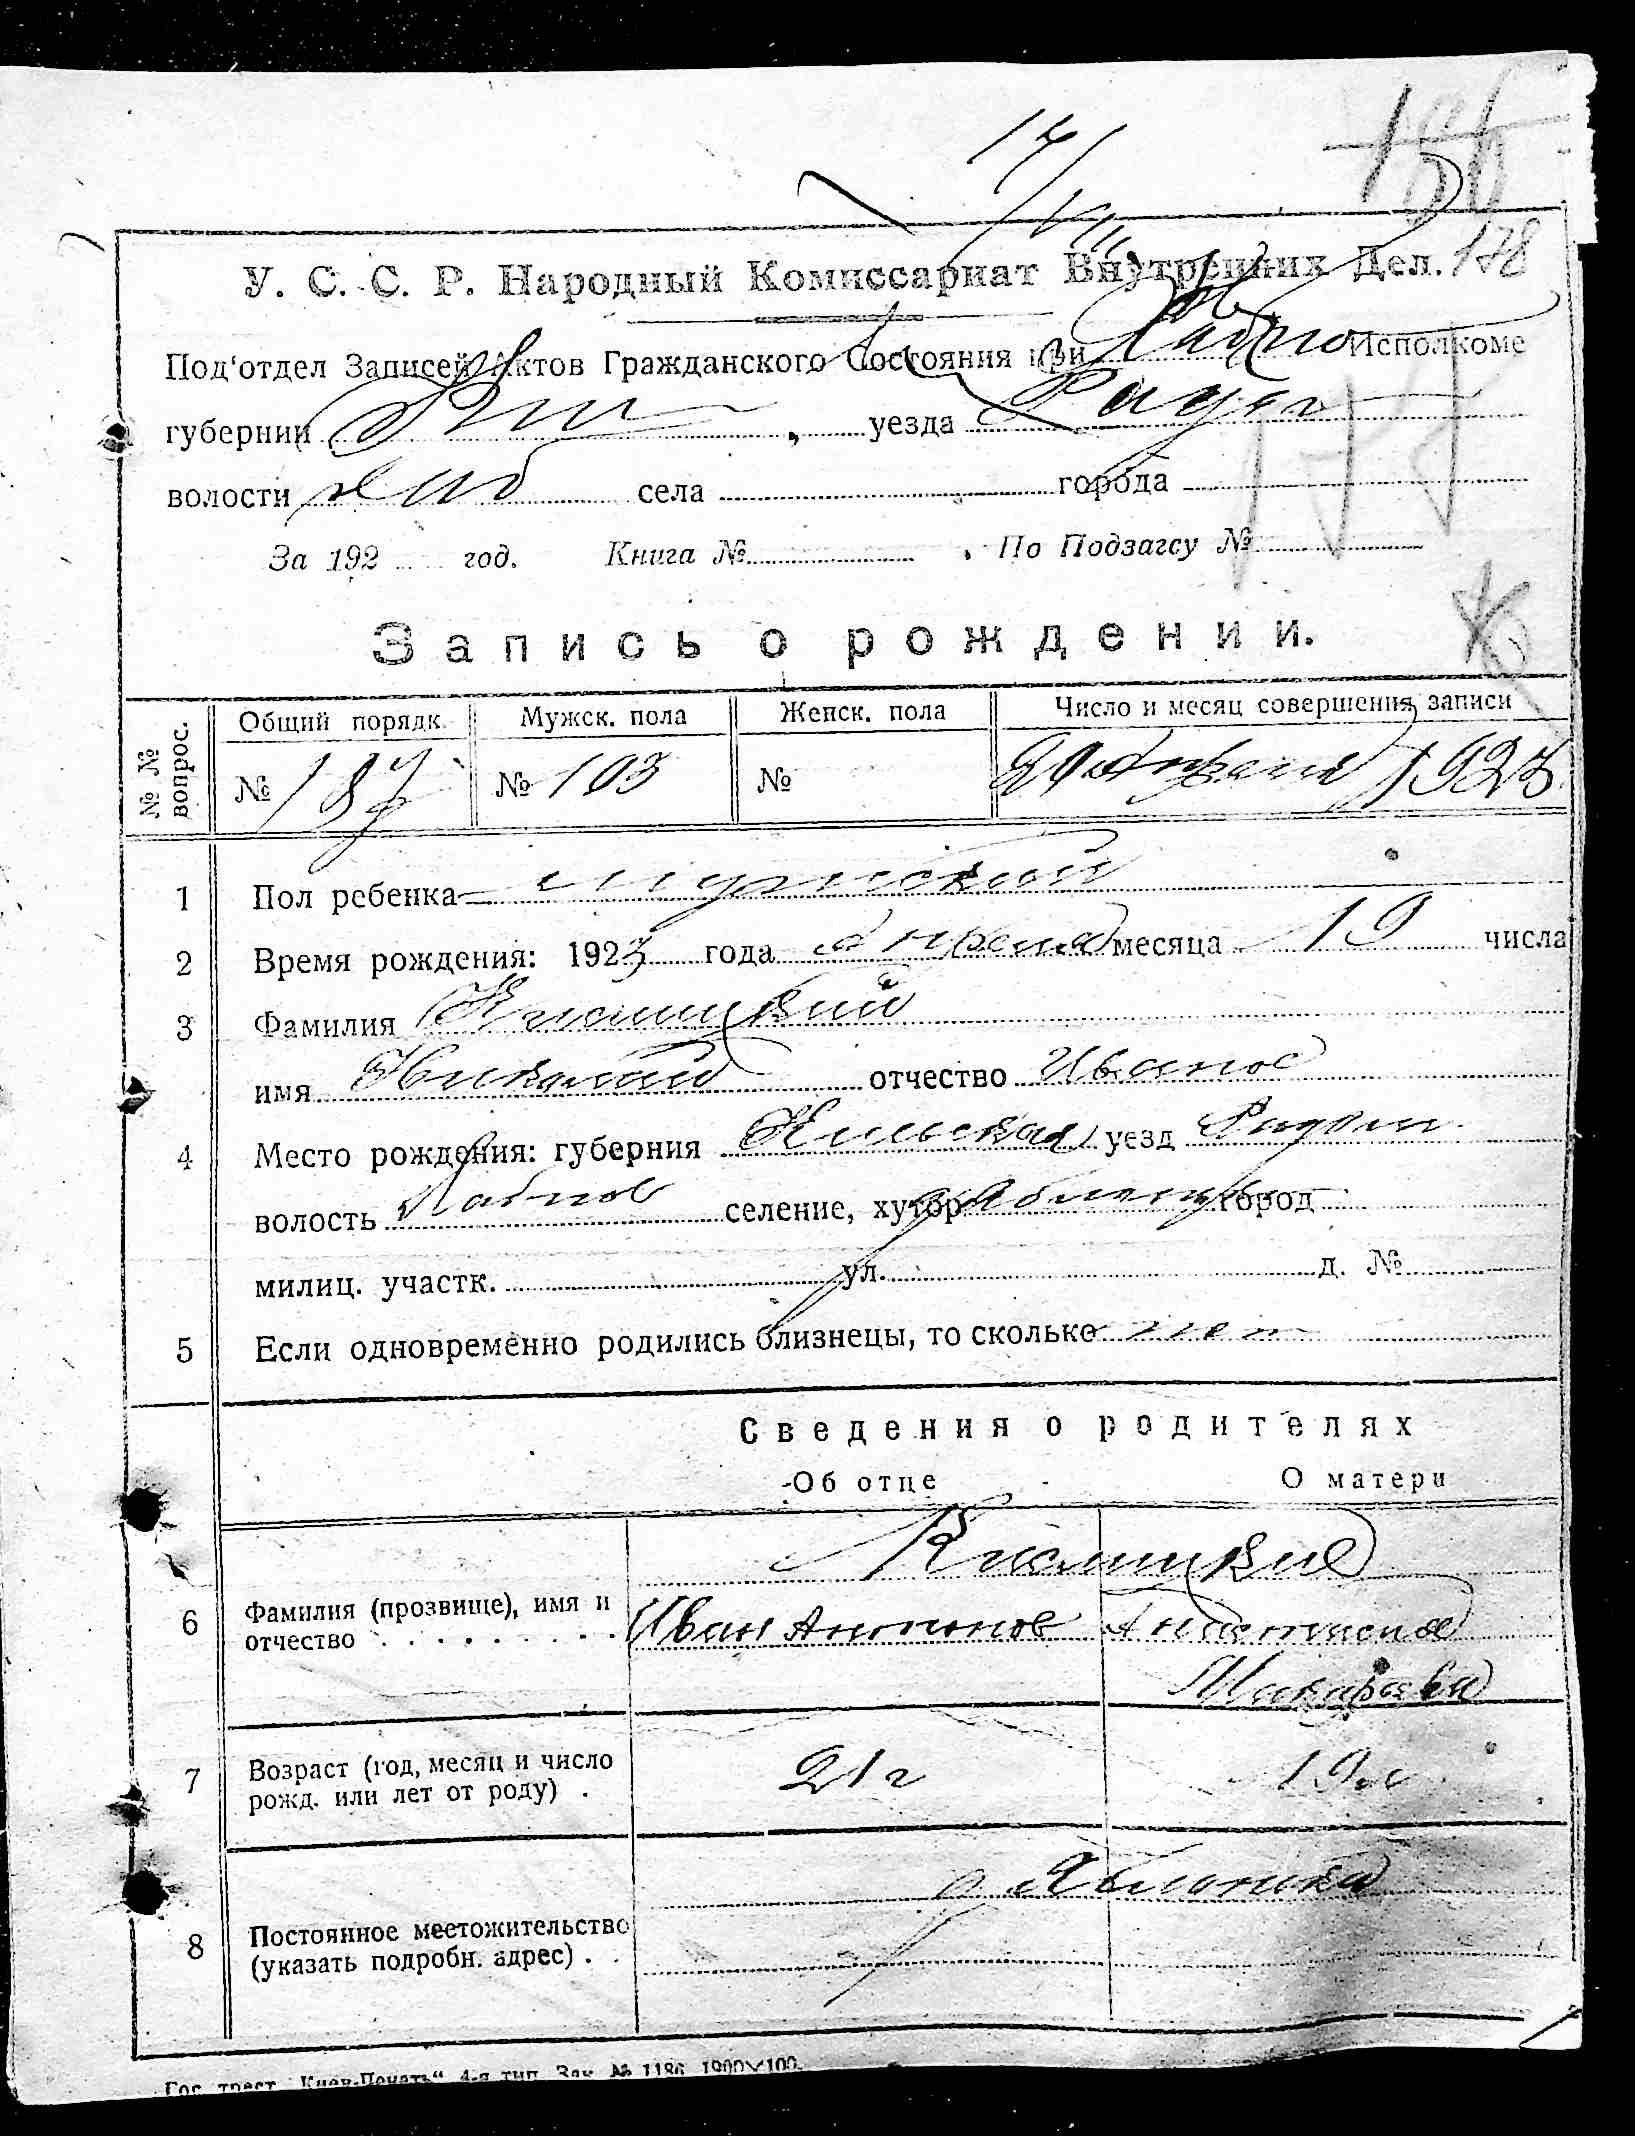 14/VII
178
У. С. С. Р. Народный Комиссариат Внутренних Дел.
Под'отдел Записей Актов Гражданского Состояния при Исполкоме
губернии , уезда
волости села города
За 192 год. Книга № По Подзагсу №
177
Запись о рождении.
№ № вопрос. Общий порядк. Мужск. пола Женск. пола Число и месяц совершения записи
№ 187 № 103 № Апреля 1923
1 Пол ребенка мужской
2 Время рождения: 1923 года Апреля месяца 19 числа
3 Фамилия Кислицкий
имя Николай отчество Иванов
4 Место рождения: губерния Киевская уезд Радом
волость Хабнов селение, хутор город
милиц. участк. ул. д. №
5 Если одновременно родились близнецы, то сколько нет
Сведения о родителях
Об отце О матери
Кислицкие
6 Фамилия (прозвище), имя и
отчество . . . . . . . . Иван Антонов Анастасия
Макарова
7 Возраст (год, месяц и число
рожд. или лет от роду) . 21 г 19 л
с. Яблонька
8 Постоянное местожительство
(указать подробн. адрес) . .
Гос. трест „Киев-Печать“ 4-я тип. Зак. № 1186 1900×100.